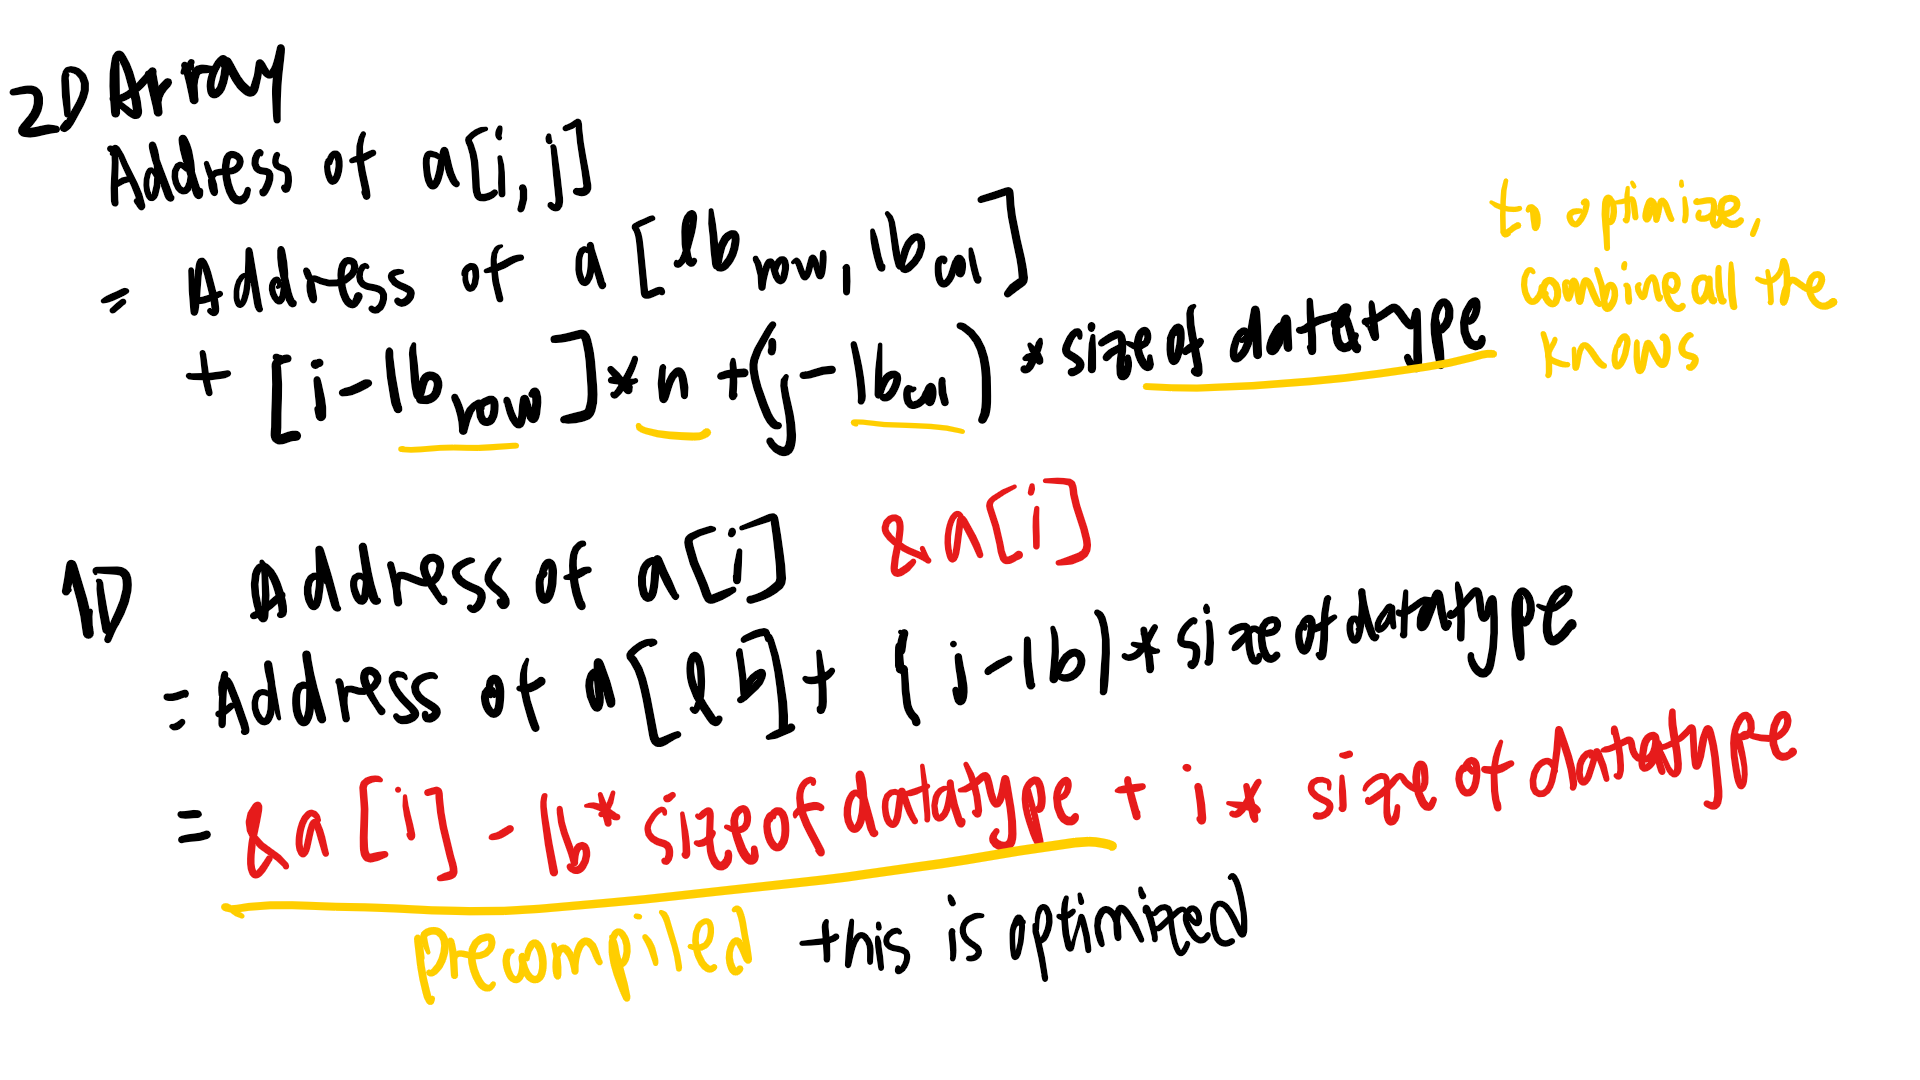 2D Array
Address of a[i, j]
= Address of a [lb row, lb col]
+ [i - lb row] * n + (j - lb col) * size of datatype
to optimize,
combine all the
knows
1D Address of a[i] &a[i]
= Address of a[lb] + (j - lb) * size of datatype
= &a[i] - lb * size of datatype + i * size of datatype
precompiled this is optimized